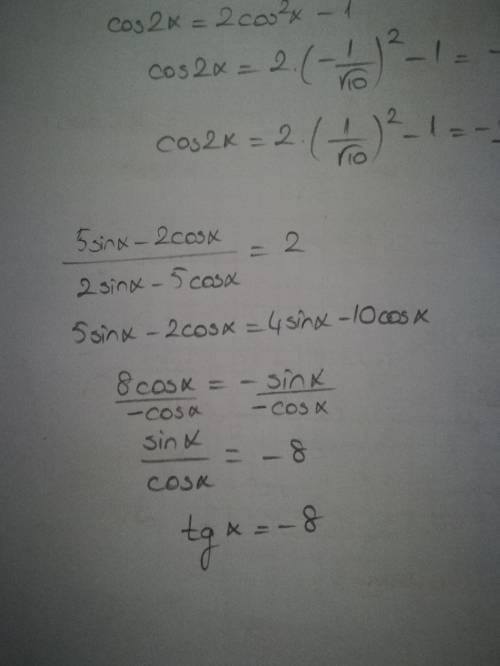 cos2x = 2cos²x - 1
cos2x = 2·(-1/√10)² - 1 = -
cos2x = 2·(1/√10)² - 1 = -
(5sinx - 2cosx)/(2sinx - 5cosx) = 2
5sinx - 2cosx = 4sinx - 10cosx
8cosx/-cosx = -sinx/-cosx
sinx/cosx = -8
tg x = -8